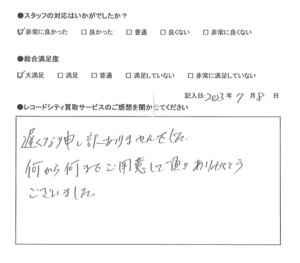 ●スタッフの対応はいかがでしたか？
☑非常に良かった　□良かった　□普通　□良くない　□非常に良くない
●総合満足度
☑大満足　□満足　□普通　□満足していない　□非常に満足していない
記入日:2023年7月8日
●レコードシティ買取サービスのご感想を聞かせてください
遅くなり申し訳ありませんでした
何から何までご用意して頂きありがとう
ございました